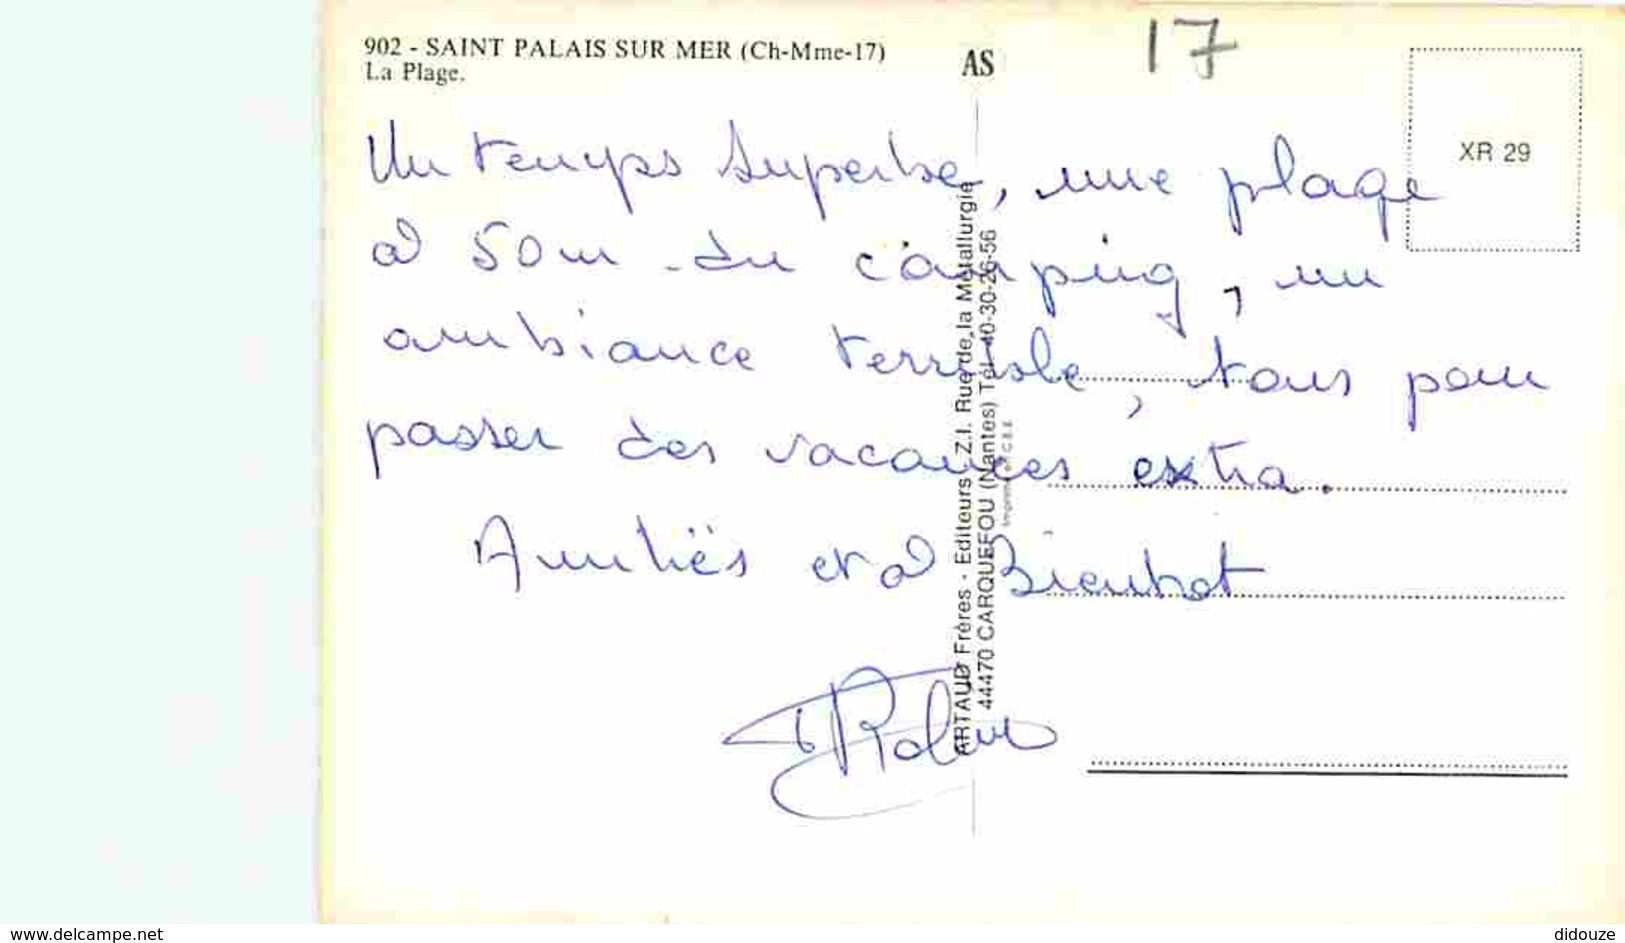 902 - SAINT PALAIS SUR MER (Ch-Mme-17)
La Plage.
AS
17
XR 29
Un temps superbe, une plage
à 50m du camping, un
ambiance terrible, tous pour
passer des vacances extra.
Amitiés et à Bientot
ARTAUD Frères - Editeurs Z.I. Rue de la Métallurgie
44470 CARQUEFOU (Nantes) Tél. 40-30-26-56
www.delcampe.net
didouze